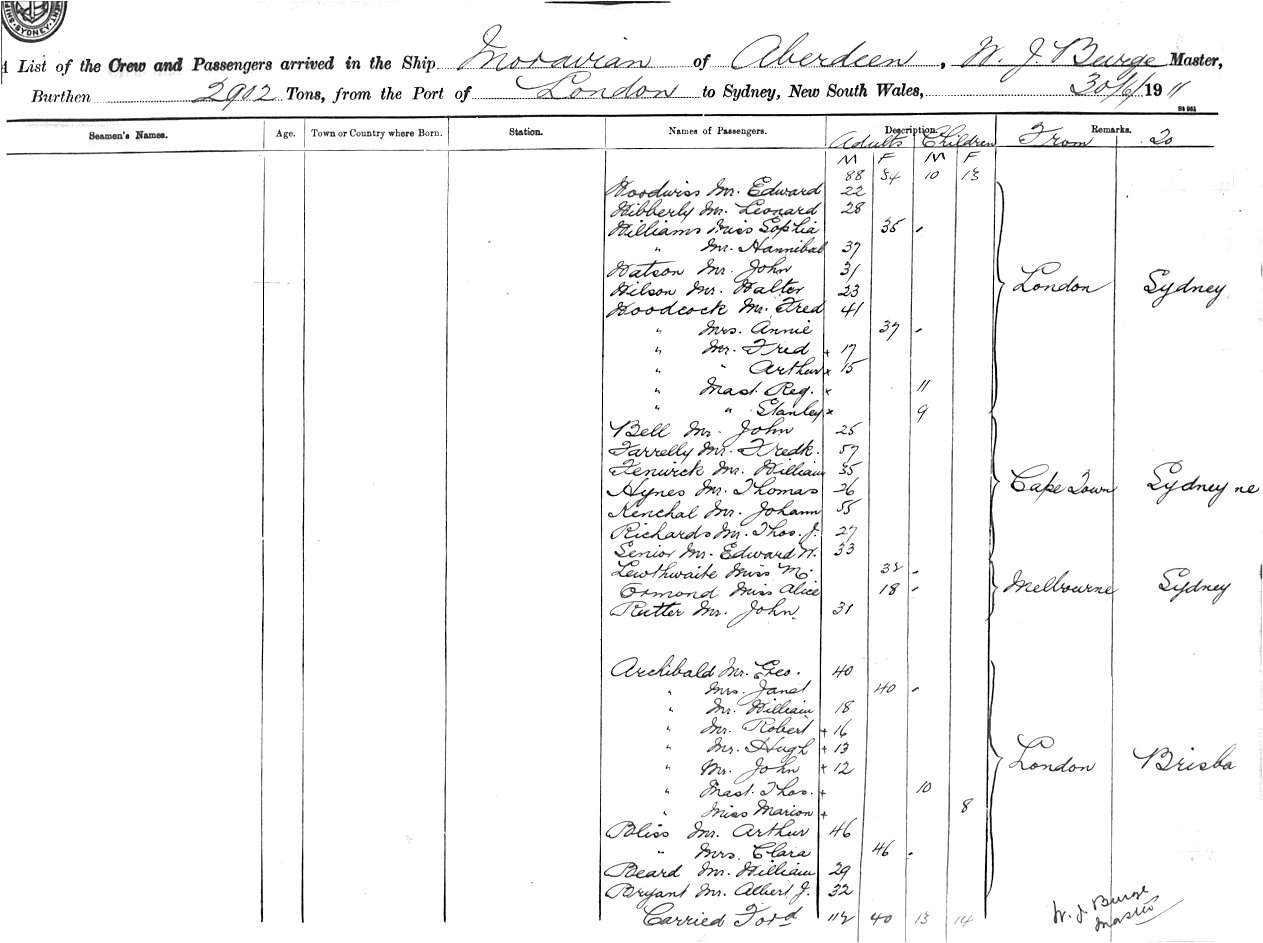 SYDNEY
A List of the Crew and Passengers arrived in the Ship Moravian of Aberdeen, W. J. Burge Master,
Burthen 2902 Tons, from the Port of London to Sydney, New South Wales, 30/6/1911
St 951
Seamen's Names. Age. Town or Country where Born. Station. Names of Passengers. Description. Remarks.
Adults Children From To
M F M F
88 34 10 13
Woodwiss Mr. Edward 22
Wibberly Mr. Leonard 28
Williams Miss Sophia 35
" Mr. Hannibal 37
Watson Mr. John 31
Wilson Mr. Walter 23 London Sydney
Woodcock Mr. Fred 41
" Mrs. Annie 37
" Mr. Fred + 17
" " Arthur x 15
" Mast. Reg. x 11
" " Stanley x 9
Bell Mr. John 25
Farrelly Mr. Fredk. 57
Fenwick Mr. William 35
Hynes Mr. Thomas 26 Cape Town Sydney ne
Kenchal Mr. Johann 55
Richards Mr. Thos. J. 27
Senior Mr. Edward W. 33
Lewthwaite Miss M.
Ormond Miss Alice 18 Melbourne Sydney
Rutter Mr. John 31
Archibald Mr. Geo. 40
" Mrs. Janet 40
" Mr. William 18
" Mr. Robert + 16
" Mr. Hugh + 13
" Mr. John + 12 London Brisba
" Mast. Thos. + 10
" Miss Marion + 8
Bliss Mr. Arthur 46
" Mrs. Clara 46
Beard Mr. William 29
Bryant Mr. Albert J. 32
Carried Ford 112 40 13 14
W. J. Burge
Master